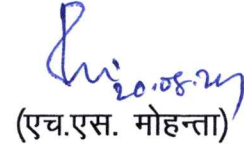 20.08.24
(एच.एस. मोहन्ता)